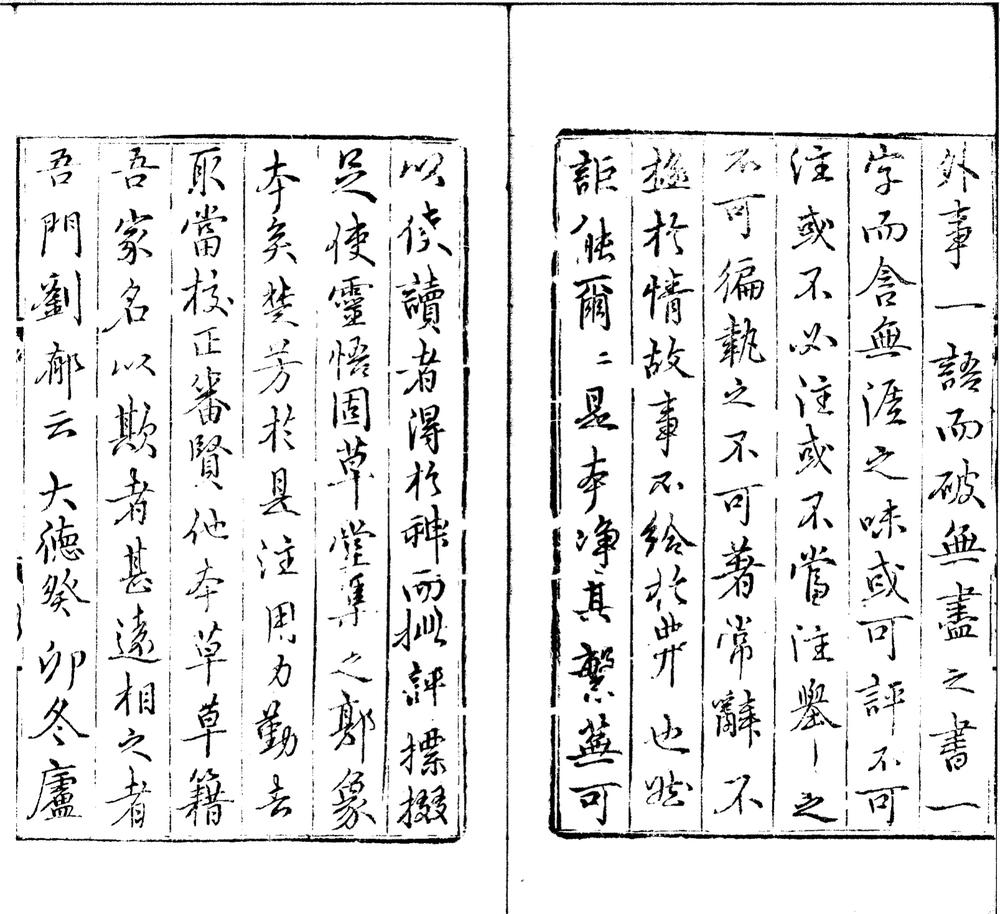 外事一語而破無盡之書一
字而含無涯之味或可評不可
注或不必注或不當注舉一之
不可偏執之不可著常辭不
極於情故事不給於弊也然
詎能爾爾是本淨其繁蕪可
以使讀者得於神而批評摽掇
足使靈悟固草堂集之郭象
本矣楚芳於是注用力勤去
取當校正審賢他本草草籍
吾家名以欺者甚遠相之者
吾門劉郁云大德癸卯冬廬